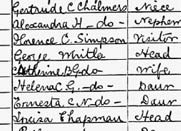 Gertrude C Chalmers Niece
Alexandra H - do - Nephew
Florence C. Simpson Visitor
George Whittle Head
Catherine B G do Wife
Helena G. - do - Daur
Ernesta C N do - Daur
Louisa Chapman Head